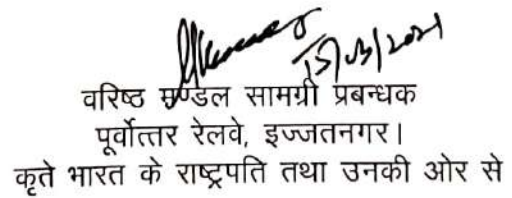 15/03/2021
वरिष्ठ मण्डल सामग्री प्रबन्धक
पूर्वोत्तर रेलवे, इज्जतनगर।
कृते भारत के राष्ट्रपति तथा उनकी ओर से